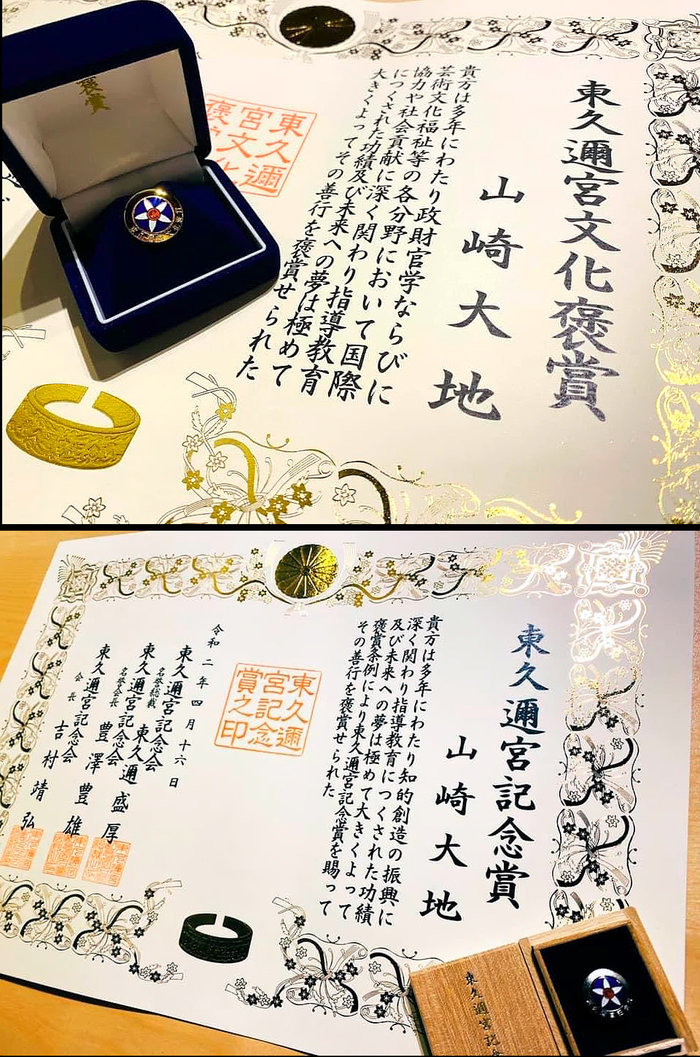 東久邇宮文化褒賞
山崎大地
貴方は多年にわたり政財官学ならびに
芸術文化福祉等の各分野において国際
協力や社会貢献に深く関わり指導教育
につくされた功績及び未来への夢は極めて
大きくよってその善行を褒賞せられた
東久邇
宮文化
褒賞
東久邇宮記念賞
山崎大地
貴方は多年にわたり知的創造の振興に
深く関わり指導教育につくされた功績
及び未来への夢は極めて大きくよって
褒賞条例により東久邇宮記念賞を賜って
その善行を褒賞せられた
東久邇
宮記念
賞之印
令和二年四月十六日
東久邇宮記念会
名誉総裁 東久邇盛厚
東久邇宮記念会
名誉会長 豊澤豊雄
東久邇宮記念会
会長 吉村靖弘
東久邇宮記念